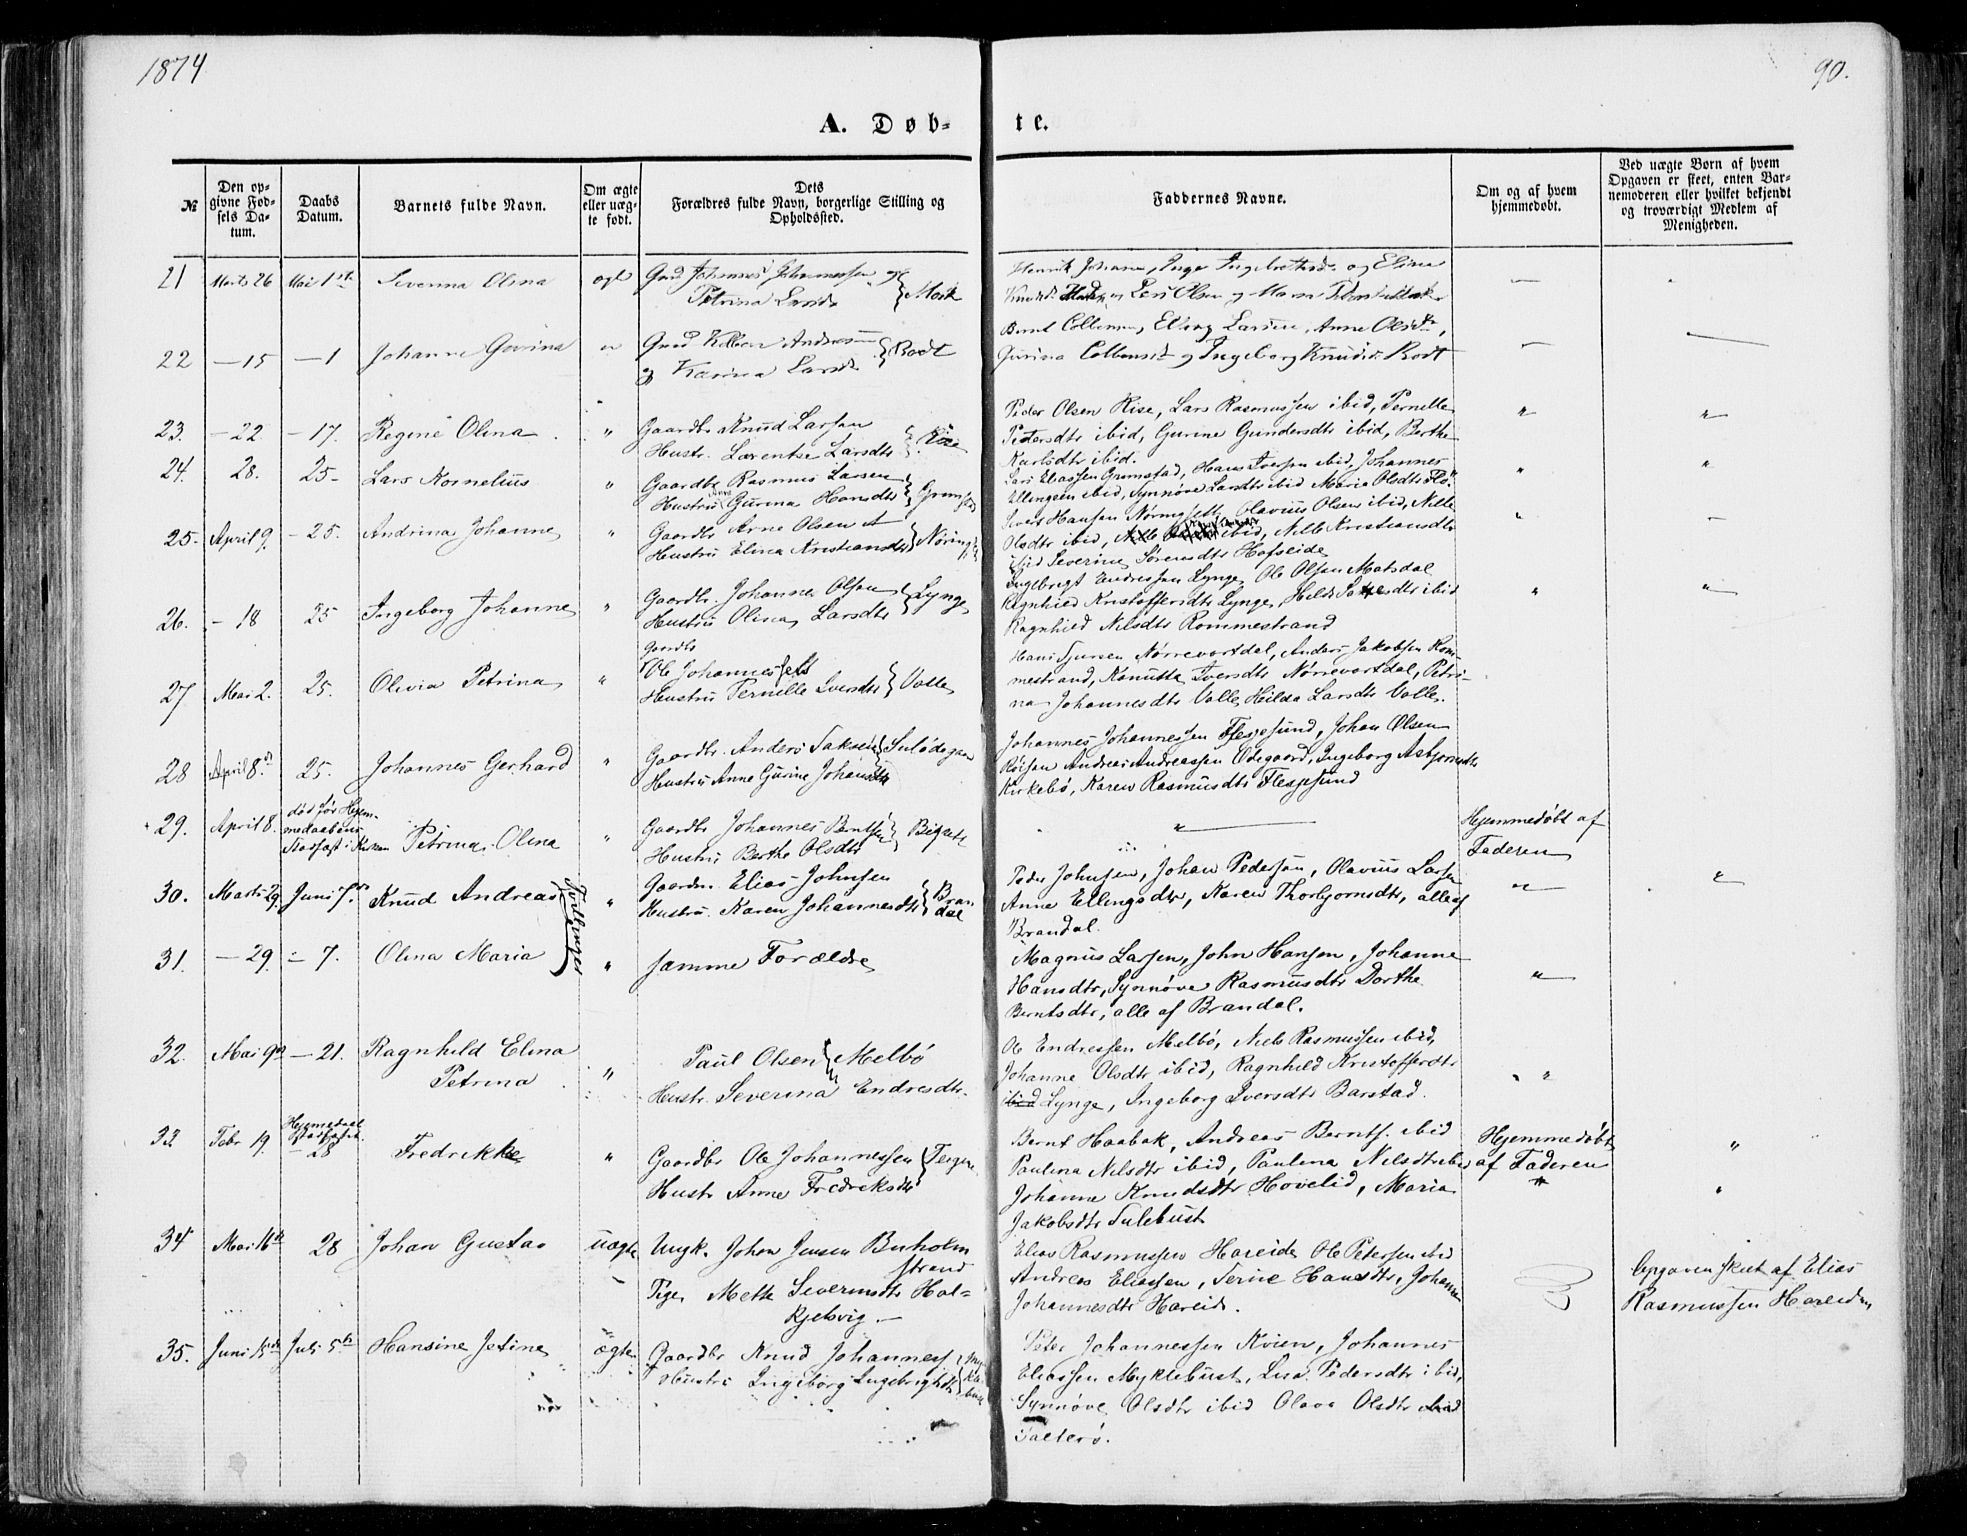 1874
90.
A. Døb- te.
№
Den op-
givne Fød-
sels Da-
tum.
Daabs
Datum.
Barnets fulde Navn.
Om ægte
eller uæg-
te født.
Dets
Forældres fulde Navn, borgerlige Stilling og
Opholdssted.
Faddernes Navne.
Om og af hvem
hjemmedøbt.
Ved uægte Børn af hvem
Opgaven er skeet, enten Bar-
nemoderen eller hvilket bekjendt
og troværdigt Medlem af
Menigheden.
21 Marts 26 Mai 1ste Severina Olina ægte Johannes Johannessen og
Petrina Larsd. Mork
Henrik Johans, Inge og Elina
Lars Olsen og
22 — 15 — 1 Johanne Govina Andreas
og Karina Larsd. Rodt
Bernt Collensen, Elling Larsen, Anne Olsdtr,
Gurina og Ingeborg Knudsd. Rodt
23. — 22 — 17. Regine Olina " Gaardbr Knud Larsen
Hustr. Larentse Larsdtr Rise
Peder Olsen Rise, Lars Rasmussen ibid, Pernelle
Petersdtr ibid, Gurine Gundersdtr ibid, Berthe
Karlsdtr ibid.
24. 28. 25 - Lars Kornelius " Gaardbr Rasmus Larsen
Hustru Gurina Hansdtr Grimstad
Lars Eliassen Grimstad, Hans Iversen ibid, Johannes
Ellingsen ibid, Synnøve Larsdtr ibid Maria Olsdtr Flø
25. April 9. - 25. Andrina Johanne " Gaardbr Arne Olsen
Hustru Elina Kristiansdtr
Hansen Olavius Olsen ibid, Nille
Olsdtr ibid, ibid, Nille Kristiansdtr
ibid Severine Sørensdtr Hofseide
26. - 18 25 Ingeborg Johanne " Gaardbr. Johannes Olsen
Hustru Olina Larsdtr Lynge
Ingebrigt Endressen Lynge, Ole Olsen Matsdal
Ragnhild Kristoffersdtr Lynge, ibid
Ragnhild Nilsdtr Rommestrand
27 Mai 2. 25. Olivia Petrina " Gaardbr
Ole Johannessen
Hustru Pernille Iversdtr Valle
Hans Nørrevartdal, Anders Jakobsen Rom-
mestrand, Kanutte Iversdtr Nørrevartdal, Petri-
na Johannesdtr Valle, Hilda Larsdtr Valle.
28 April 8de 25. Johannes Gerhard " Gaardbr. Anders
Hustru Anne Gurine Johansdtr
Johannes Johannessen Flesjesund, Johan Olsen
Andreas Andreassen Ødegaard, Ingeborg Asbjørnsdtr
Kirkebø, Karen Rasmusdtr Flesjesund
29. April 8. død før Hjem-
medaabens
Stadfæst. i Kirken Petrina Olina " Gaardbr Johannes Berntsen
Hustru Berthe Olsdtr
"
Hjemmedøbt af
Faderen
30. Marts 29. Juni 7de Knud Andreas Tvillinger " Gaardm. Elias Johnsen
Hustru. Karen Johannesdtr Bran
dal
Peder Johnsen, Johan Pedersen, Olavius Larsen
Anne Ellingsdtr, Karen Thorbjørnsdtr, alle af
Brandal.
31. — 29. - 7. Olina Maria " samme Forældre
Magnus Larsen, John Hansen, Johanne
Hansdtr, Synnøve Rasmusdtr Dorthe
Berntsdtr, alle af Brandal.
32. Mai 9de — 21. Ragnhild Elina
Petrina " Paul Olsen Melbø
Hustr. Severina Endresdtr.
Ole Endressen Melbø, Niels Rasmussen ibid,
Johanne Olsdtr ibid, Ragnhild Kristoffersdtr
ibid Lynge, Ingeborg Iversdtr Barstad.
33 Febr 19. Hjemmedaab
Stadfæst.
— 28 Fredrikke " Gaardbr Ole Johannessen
Hustr Anne Fredriksdtr
Bernt Haabak, Andreas Bernts. ibid
Paulina Nilsdtr ibid, Paulina Nilsdtr ibid
Johanne Knudsdtr Hovelid, Maria
Jakobsdtr Tulebust
Hjemmedøbt
af Faderen
34 Mai 16de 28 Johan Gustav uægte Ungk. Johan Jensen Buholm
strand
Pige Mette Severinsdtr Hol-
kjelsvig. —
Elias Rasmussen Hareide Ole Petersen ibid
Andreas Eliassen, Serine Hansdtr, Johanne
Johannesdtr Hareide.
Opgaven skeet af Elias
Rasmussen Hareide
35. Juni 15de Juli 5te Hansine Jetine ægte Gaardbr Knud Johanness.
Hustru Ingeborg Ingebrigtsdtr
Peter Johannessen Kvien, Johannes
Eliassen Myklebust, Lisa Pedersdtr ibid,
Synnøve Olsdtr ibid Olava Olsdtr